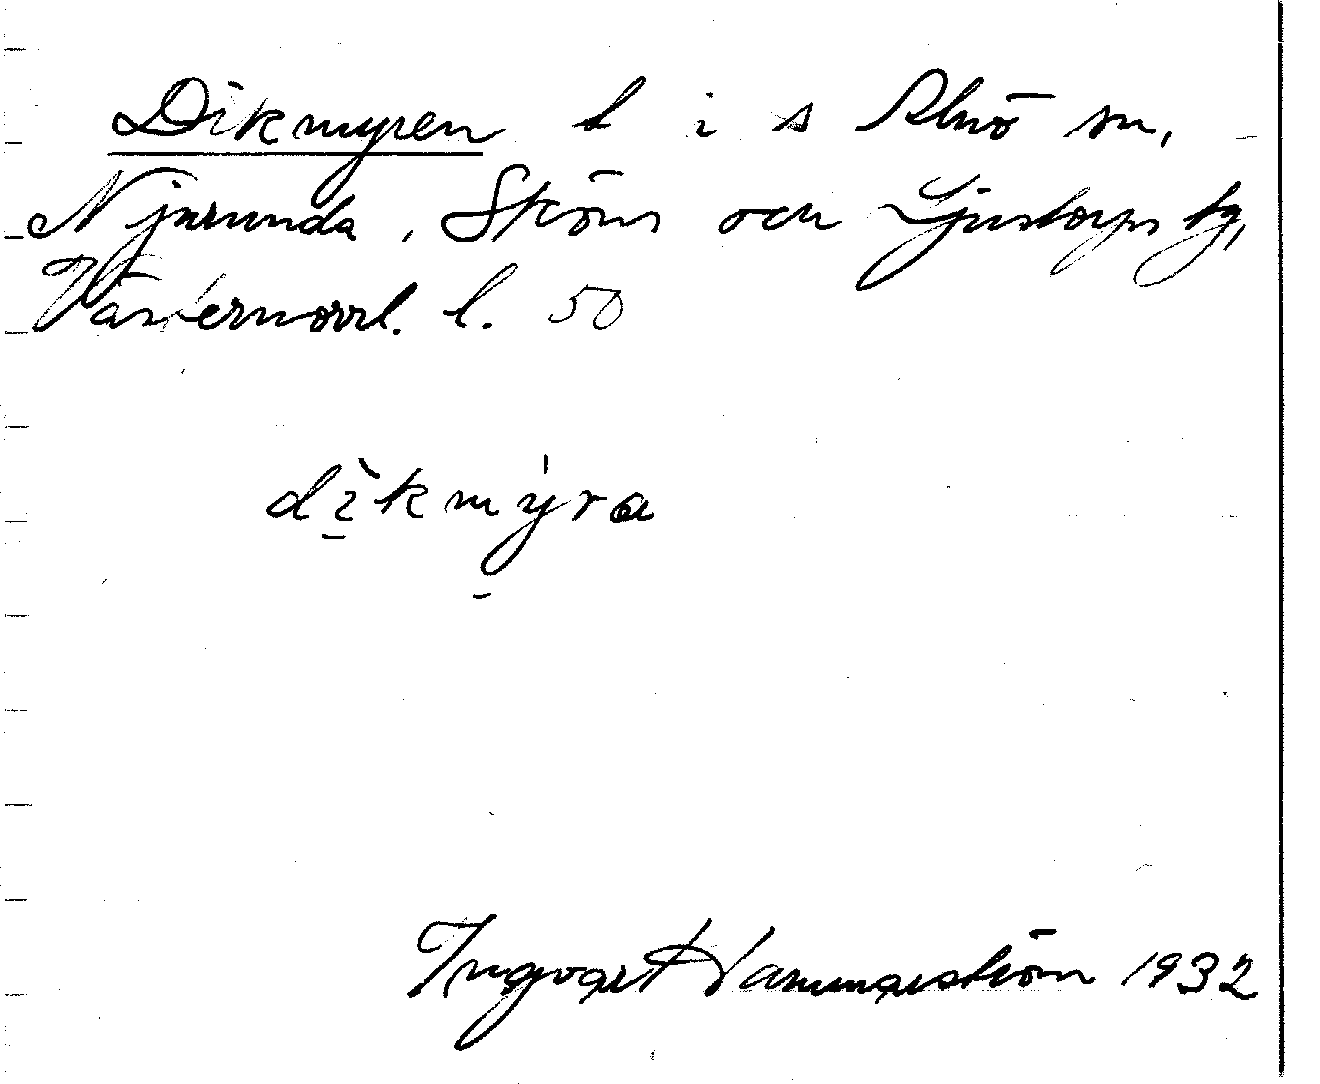 Dikmyren l i s Alnö sn,
Njurunda, Sköns och Ljustorps tg,
Västernorrl. l. 50
dìkmýra
Ingvar Hammarström 1932